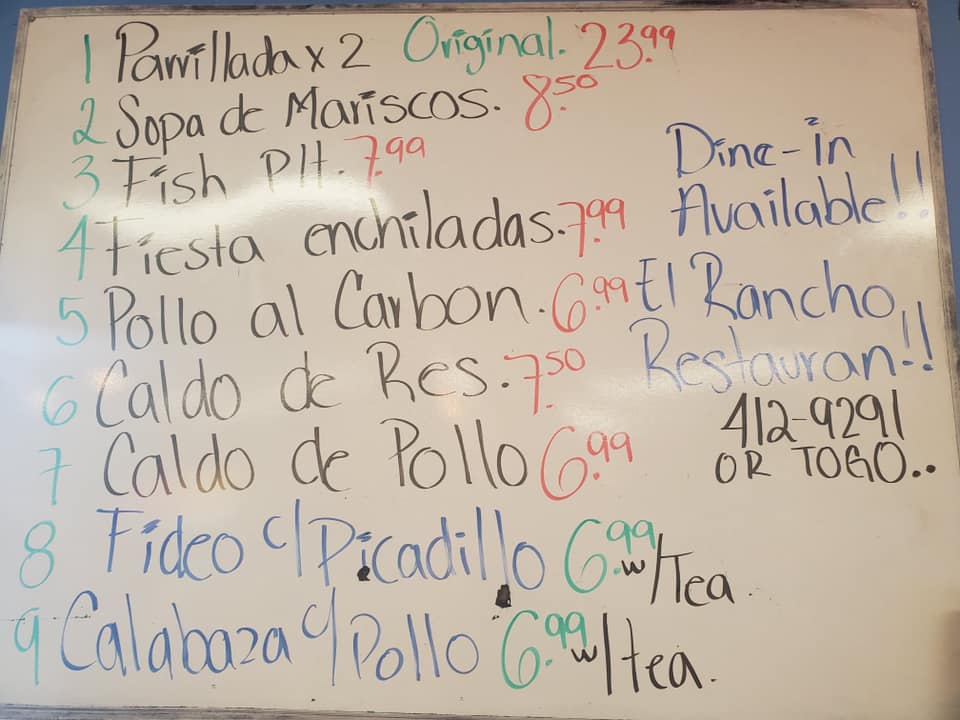 1 Parrillada x 2 Original. 23.99
2 Sopa de Mariscos. 8.50
3 Fish Plt. 7.99
4 Fiesta enchiladas. 7.99
5 Pollo al Carbon. 6.99
6 Caldo de Res. 7.50
7 Caldo de Pollo 6.99
8 Fideo c/Picadillo 6.99 w/Tea.
9 Calabaza c/Pollo 6.99 w/tea.
Dine-in
Available!!
El Rancho
Restauran!!
412-9291
OR TOGO..